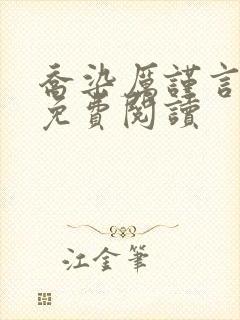 喬染厲謹言
免費閱讀
江金筆